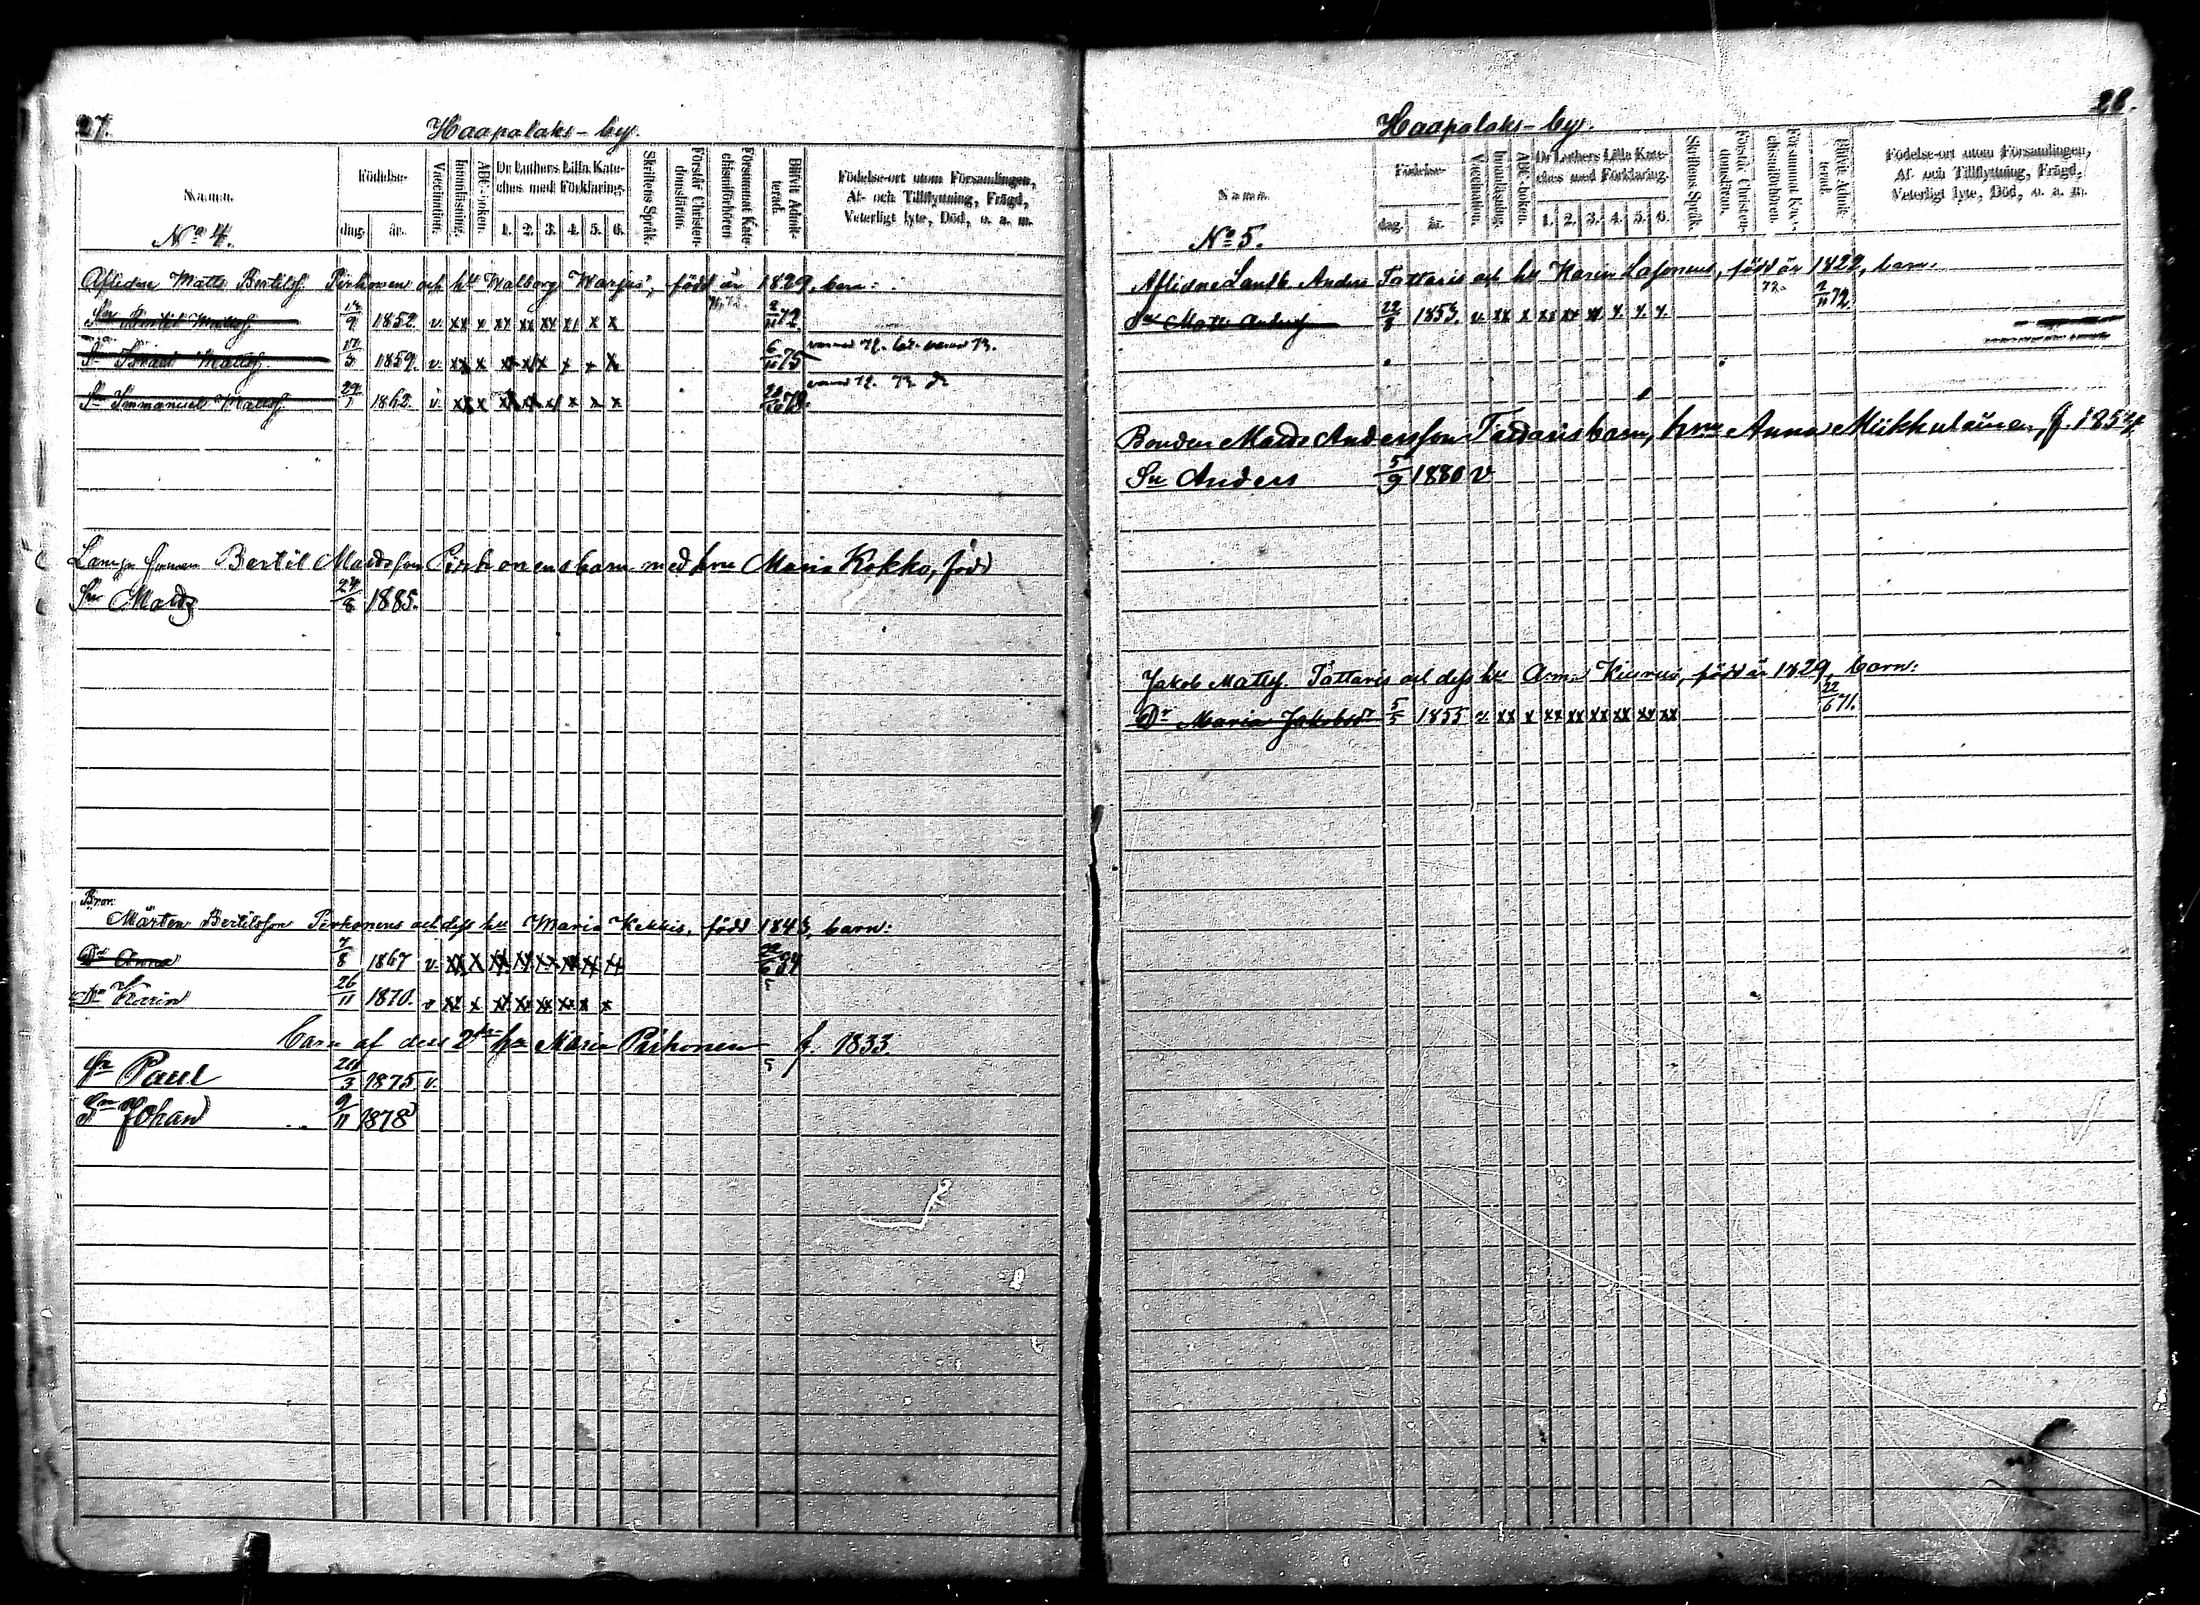 27.
Haapalaks-by.
Namn.
Födelse-
dag.
år.
Vaccination.
Innanläsning.
ABC-boken.
Dr Luthers Lilla Kate-
ches med Förklaring.
1. 2. 3. 4. 5. 6.
Skriftens Språk.
Förstår Christen-
domsläran.
Försummat Kate-
chismiförhören
Blifvit Admit-
terad.
Födelse-ort utom Församlingen,
Af- och Tillflyttning, Frägd,
Veterligt lyte, Död, o. a. m.
No 4.
Aflidne Matts Bertils. Pirhonens och h:u Walborg, född år 1829, barn:
Sn Bertil Mattss. 1852. v. xx x xx xx xx x x x 72.
Sn Mattss. 1859. v. xx x x x x 75
Sn Immanuel Mattss. 1862. v. xx x xx xx x x x x
Bertil Madsson Pirhonens barn med hru Maria Kokko, född
Sn Mads 24/8 1885.
Mårten Bertilsson Pirhonens och dess h:u Maria Kekkis, född 1843, barn:
Dr Anna 1867 v. xx x xx xx xx xx xx xx
Dr Karin 26/11 1870. v xx x xx xx xx xx x x
barn af dess 2dra hu Maria Pirhonen f. 1833.
Sn Paul 1875 v.
Sn Johan 9/11 1878
28.
Haapalaks-by.
Namn.
Födelse-
dag.
år.
Vaccination.
Innanläsning.
ABC-boken.
Dr Luthers Lilla Kate-
ches med Förklaring.
1. 2. 3. 4. 5. 6.
Skriftens Språk.
Förstår Christen-
domsläran.
Försummat Kate-
chismiförhören.
Blifvit Admit-
terad.
Födelse-ort utom Församlingen,
Af- och Tillflyttning, Frägd,
Veterligt lyte, Död, o. a. m.
No 5.
Aflidne Landb. Anders Tattaris och h:u Karin, född år 1822, barn:
Sn Matts Anderss. 22/8 1853. v. xx x xx xx x x x x 72.
Bonden Mads Andersson Tattaris barn, hru Anna Miikkulainen, f. 1854
Sn Anders 5/9 1880 v
Jakob Matts. Tattaris och dess h:u Anna, född år 1829, barn:
Dr Maria Jakobsdr 5/5 1855 v xx x xx xx xx xx xx xx 22/6 71.